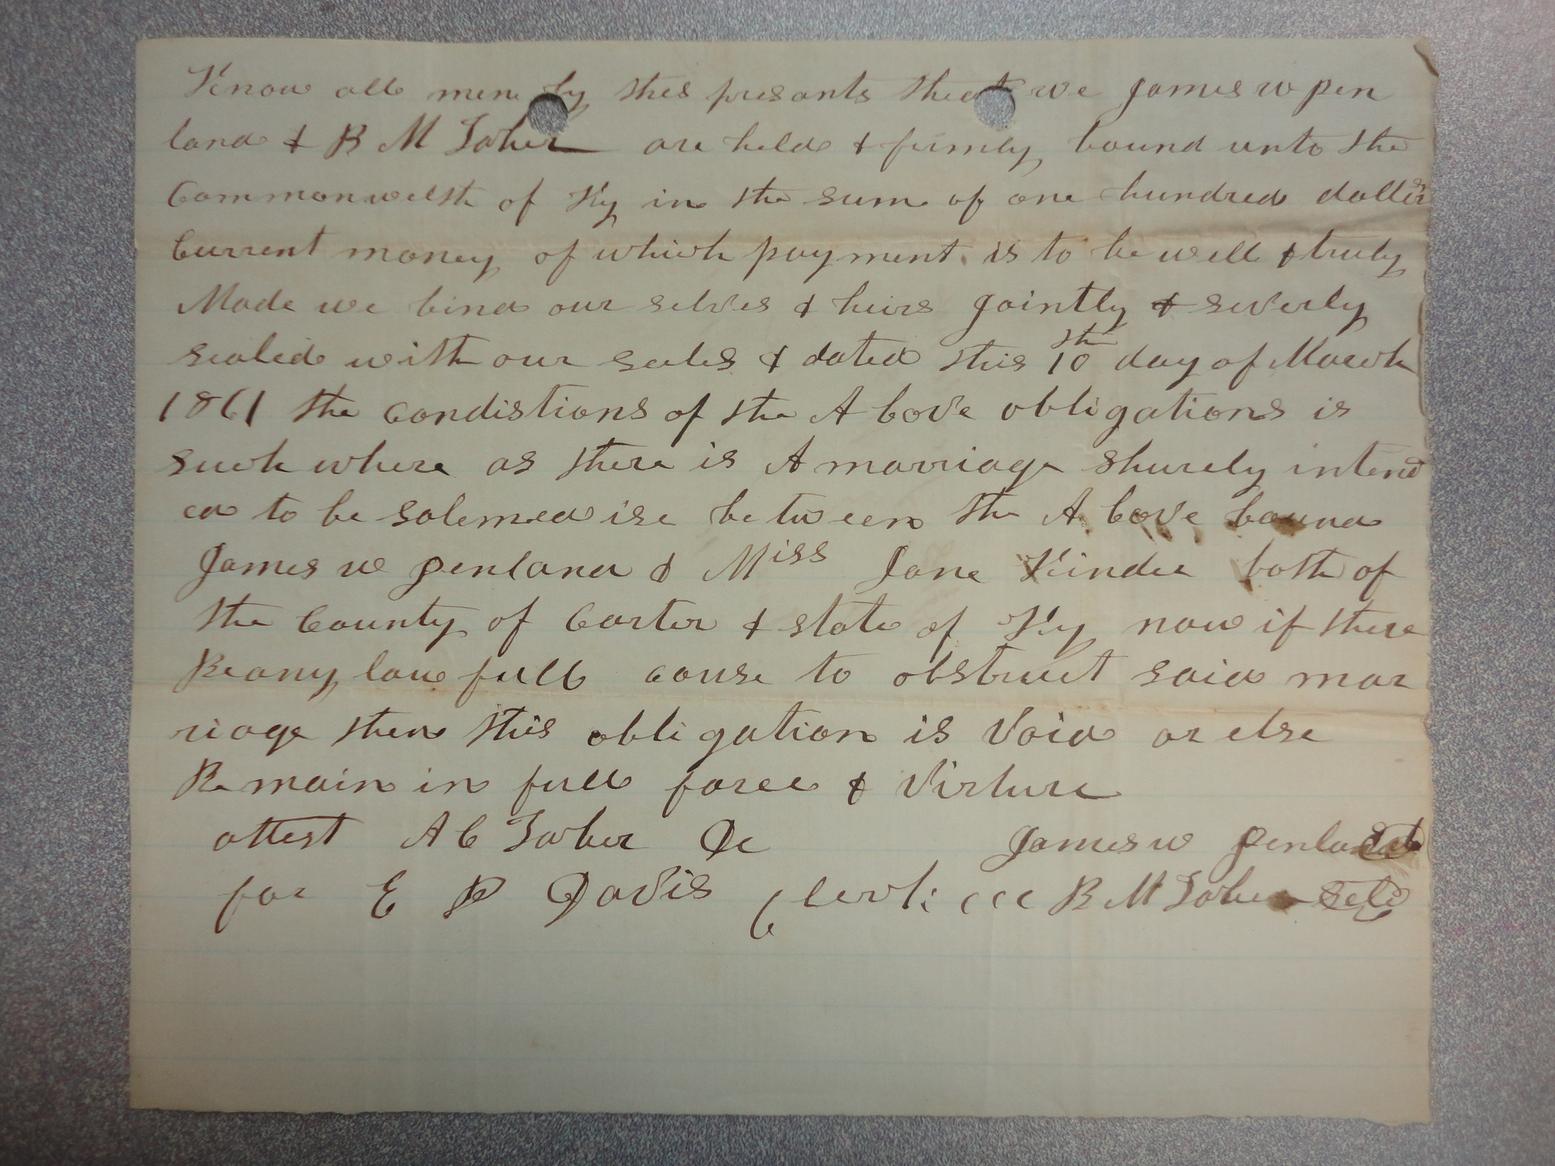 Know all men by thes presants that we James w pen
land & B M Tober are held & firmly bound unto the
Commonwelth of Ky in the sum of one hundred dollers
Current money of which payment is to be well & truly
Made we bind our selves & heirs Jointly & severly
sealed with our seals & dated this 10th day of March
1861 the condistions of the A bove obligations is
such where as there is A marriage shurely intend
ed to be solemedise between the A bove bound
James w penland & Miss Jane Kinder both of
the County of Carter & state of Ky now if there
Be any law full cause to obstruct said mar
riage then this obligation is void or else
Remain in full force & virture
attest A C Tober Dc James w penland
for E D Davis Clerk ccc B M Tober Sele